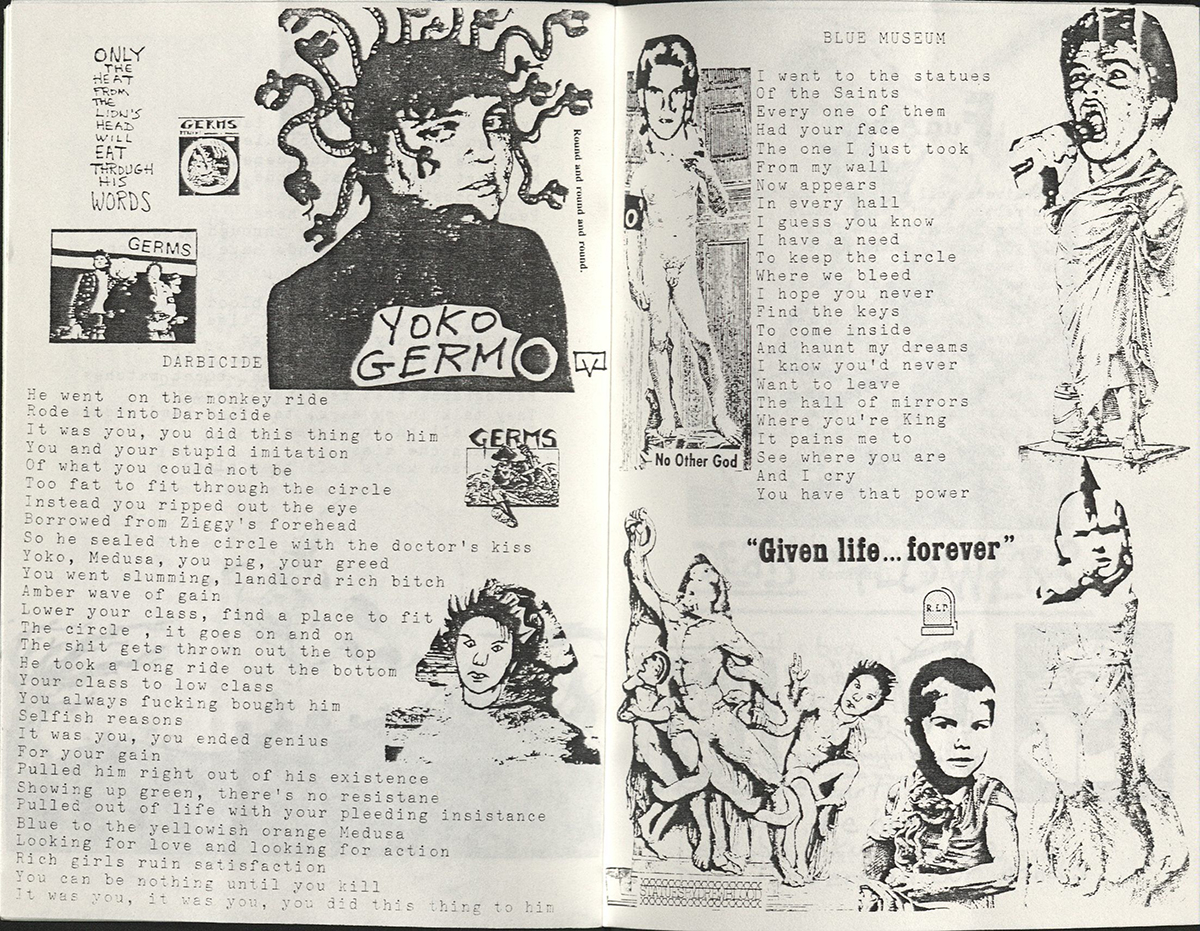 ONLY
THE
HEAT
FROM
THE
LION'S
HEAD
WILL
EAT
THROUGH
HIS
WORDS
GERMS
GERMS
Round and round and round.
YOKO
GERM
DARBICIDE
He went  on the monkey ride
Rode it into Darbicide
It was you, you did this thing to him
You and your stupid imitation
Of what you could not be
Too fat to fit through the circle
Instead you ripped out the eye
Borrowed from Ziggy's forehead
So he sealed the circle with the doctor's kiss
Yoko, Medusa, you pig, your greed
You went slumming, landlord rich bitch
Amber wave of gain
Lower your class, find a place to fit
The circle , it goes on and on
The shit gets thrown out the top
He took a long ride out the bottom
Your class to low class
You always fucking bought him
Selfish reasons
It was you, you ended genius
For your gain
Pulled him right out of his existence
Showing up green, there's no resistane
Pulled out of life with your pleeding insistance
Blue to the yellowish orange Medusa
Looking for love and looking for action
Rich girls ruin satisfaction
You can be nothing until you kill
It was you, it was you, you did this thing to him
GERMS
BLUE MUSEUM
I went to the statues
Of the Saints
Every one of them
Had your face
The one I just took
From my wall
Now appears
In every hall
I guess you know
I have a need
To keep the circle
Where we bleed
I hope you never
Find the keys
To come inside
And haunt my dreams
I know you'd never
Want to leave
The hall of mirrors
Where you're King
It pains me to
See where you are
And I cry
You have that power
No Other God
"Given life...forever"
R.I.P.